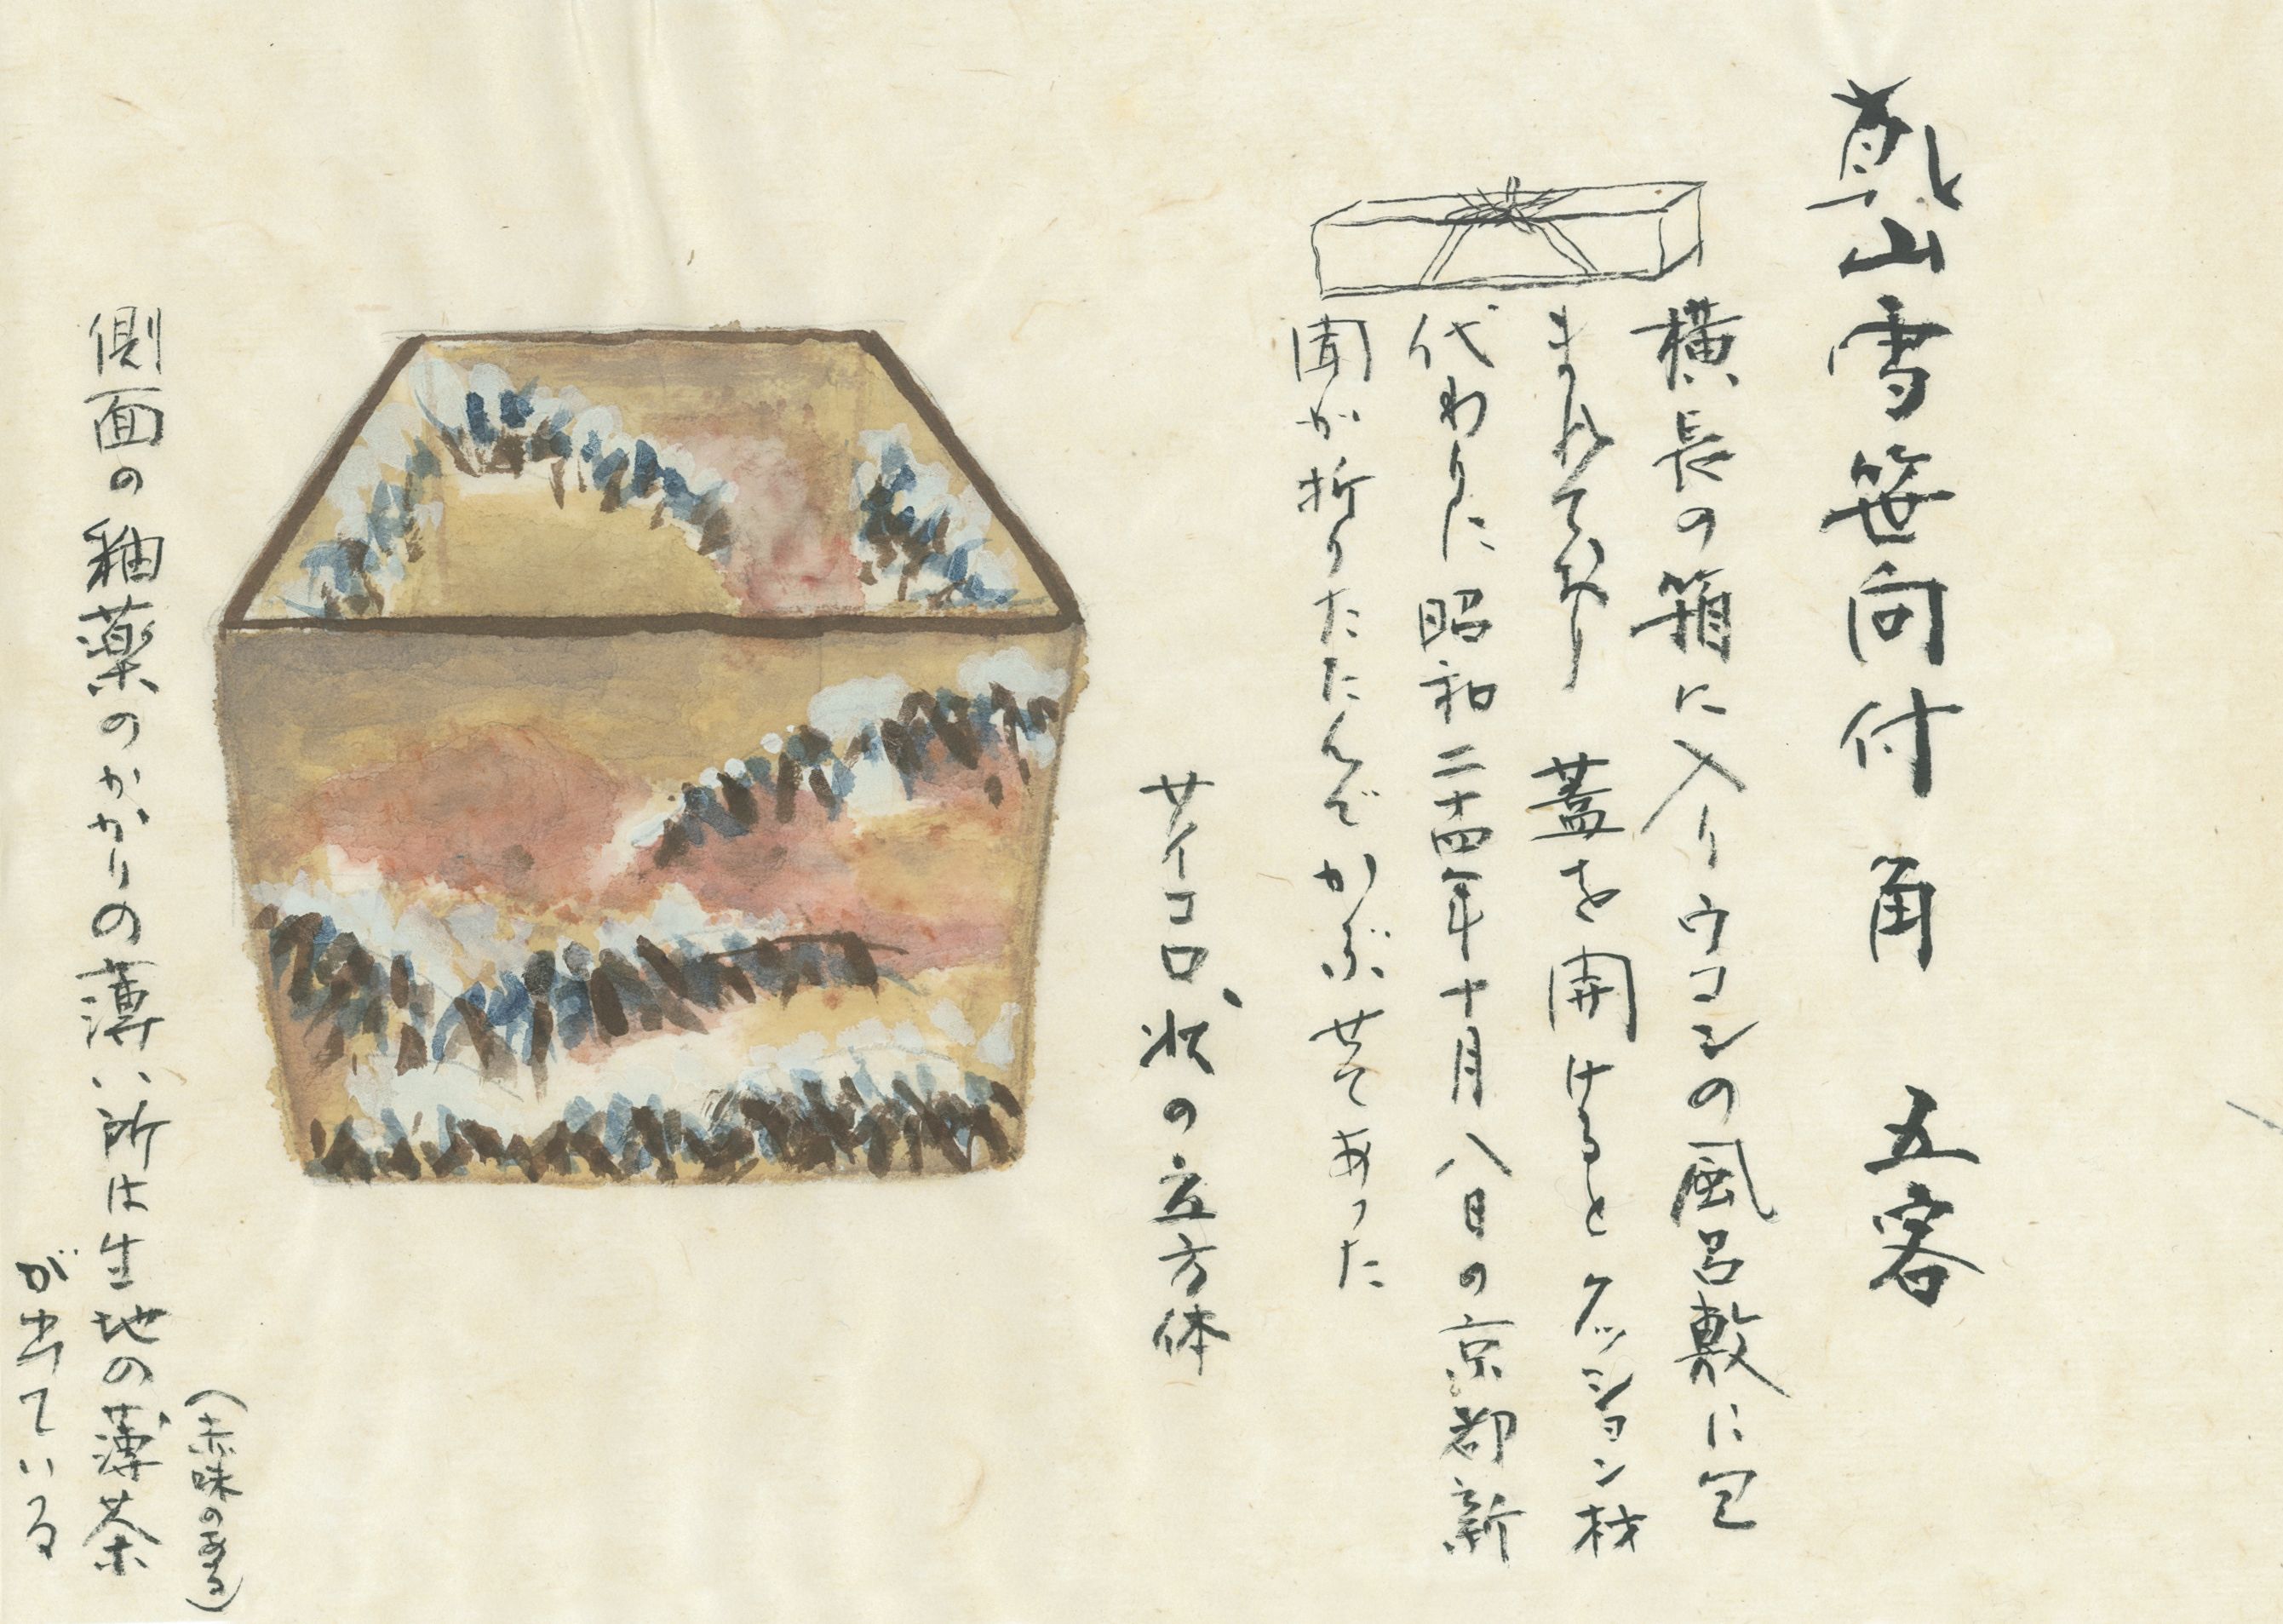 乾山雪笹向付 角 五客
横長の箱に入りウコンの風呂敷に包
まれており 蓋を開けるとクッション材
代わりに昭和二十四年十月八日の京都新
聞が折りたたんでかぶせてあった
サイコロ状の立方体
側面の釉薬のかかりの薄い所は生地の薄茶
(赤味のある)
が出ている